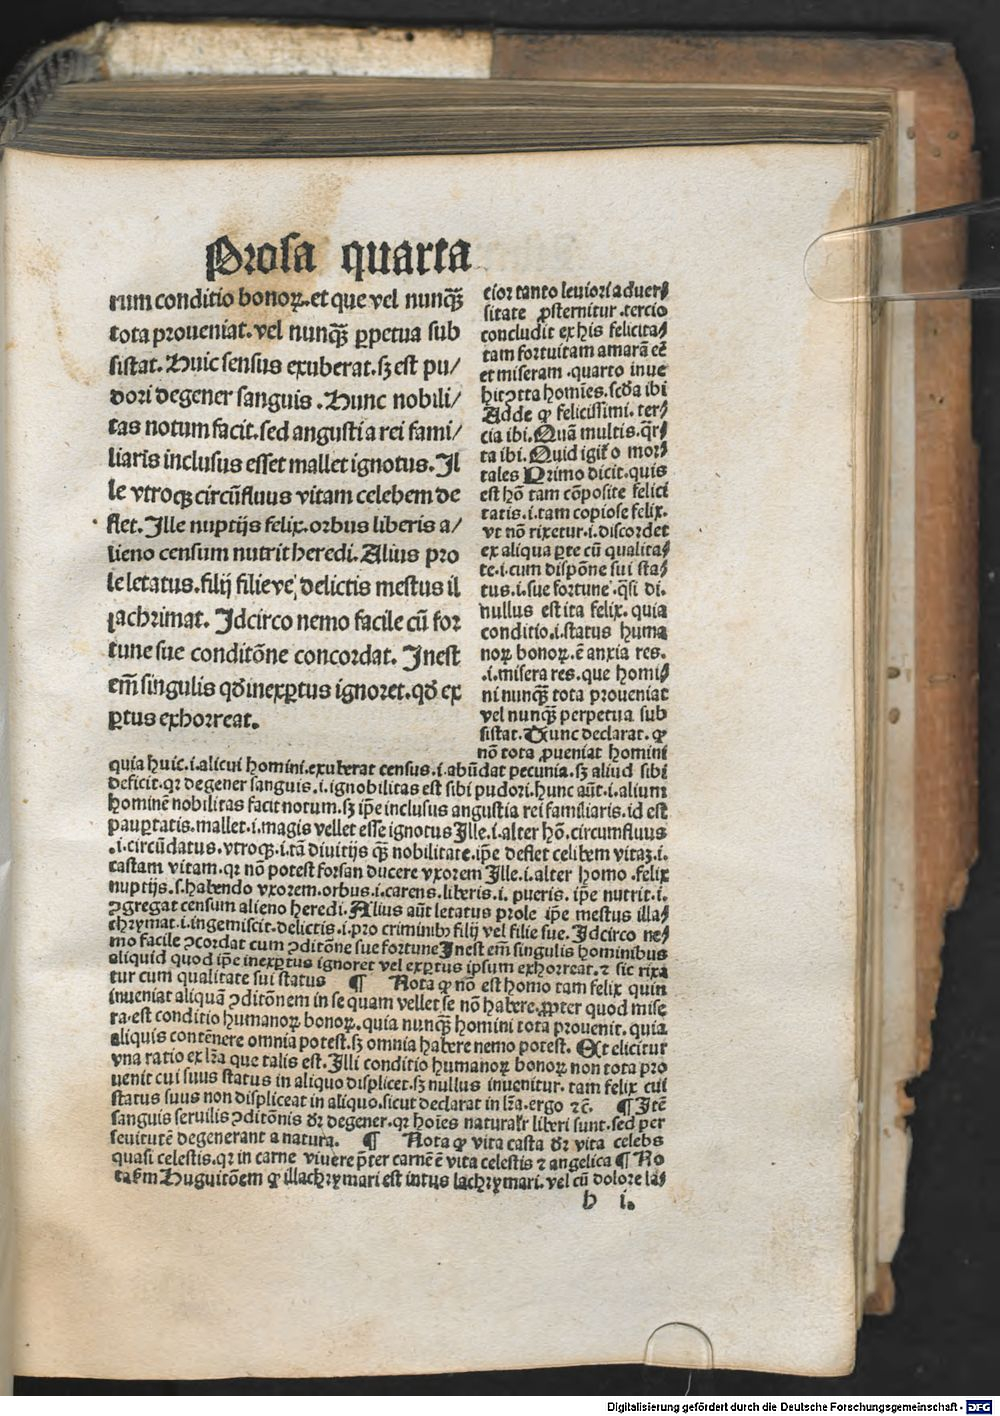 Prosa quarta
rum conditio bonoꝝ.et que vel nunqᷓꝫ
tota proueniat.vel nunqᷓꝫ ꝑpetua sub
sistat.Huic sensus exuberat.sꝫ est pu/
dori degener sanguis.Hunc nobili/
tas notum facit.sed angusti a rei fami/
liaris inclusus esset mallet ignotus.Il
le vtroqꝫ circūfluus vitam celebem de
flet.Ille nuptijs felix.orbus liberis a/
lieno censum nutrit heredi.Alius pro
le letatus.filij filieve delictis mestus il
lachrimat. Idcirco nemo facile cū for
tune sue conditōne concordat. Inest
em̄ singulis qd̄ inexꝑtus ignoret.qd̄ ex
ꝑtus exhorreat.
cior tanto leuiori aduer/
sitate ꝓsternitur.tercio
concludit ex his felicita/
tam fortuitam amarā eē
et miseram.quarto inue
hit ꝯtra homīes.scd̄a ibi
Adde ꝙ felicissimi.ter/
cia ibi.Quā multis.qr̄/
ta ibi.Quid igit̄ o mor/
tales Primo dicit.quis
est hō tam cōposite felici
tatis.i.tam copiose felix.
vt nō rixetur.i.discordet
ex aliqua ꝑte cū qualita/
te.i.cum dispōne sui sta/
tus.i.sue fortune.qͣsi di.
nullus est ita felix. quia
conditio.i.status huma
noꝝ bonoꝝ.ē anxia res.
.i.misera res.que homi/
ni nunqᷓꝫ tota proueniat
vel nunqᷓꝫ perpetua sub
sistat.Hunc declarat. ꝙ
nō tota ꝓueniat homini
quia huic.i.alicui homini.exuberat census.i.abūdat pecunia.sꝫ aliud sibi
deficit.qꝛ degener sanguis.i.ignobilitas est sibi pudori.hunc aūt.i.alium
hominē nobilitas facit notum.sꝫ ip̄e inclusus angustia rei familiaris.id est
pauꝑtatis.mallet.i.magis vellet esse ignotus Ille.i.alter hō.circumfluus
.i.circūdatus.vtroqꝫ.i.tā diuitijs qᷓꝫ nobilitate.ip̄e deflet celibem vitaꝫ.i.
castam vitam.qꝛ nō potest forsan ducere vxorem Ille.i.alter homo.felix
nuptijs.s.habendo vxorem.orbus.i.carens.liberis.i. pueris. ip̄e nutrit.i.
ꝯgregat censum alieno heredi.Alius aūt letatus prole ip̄e mestus illa/
chrymat.i.ingemiscit.delictis.i.pro criminibꝰ filij vel filie sue. Idcirco ne/
mo facile ꝯcordat cum ꝯditōne sue fortune Inest em̄ singulis hominibus
aliquid quod ip̄e inexꝑtus ignoret vel exꝑtus ipsum exhorreat.⁊ sic rixa
tur cum qualitate sui status ¶ Nota ꝙ nō est homo tam felix quin
inueniat aliquā ꝯditōnem in se quam vellet se nō habere.ꝓpter quod mise
ra.est conditio humanoꝝ bonoꝝ.quia nunqᷓꝫ homini tota prouenit.quia
aliquis contēnere omnia potest.sꝫ omnia habere nemo potest. Et elicitur
vna ratio ex lr̄a que talis est.Illi conditio humanoꝝ bonoꝝ non tota pro
uenit cui suus status in aliquo displicet.sꝫ nullus inuenitur. tam felix cui
status suus non displiceat in aliquo.sicut declarat in lr̄a.ergo ⁊c̄. ¶ Itē
sanguis seruilis ꝯditōnis dr̄ degener.qꝛ hoīes naturalr̄ liberi sunt.sed per
seuitutē degenerant a natura. ¶ Nota ꝙ vita casta dr̄ vita celebs
quasi celestis.qꝛ in carne viuere p̄ter carnē ē vita celestis ⁊ angelica ¶ No
ta ẜm Huguitōem ꝙ illachrymari est intus lachrymari.vel cū dolore la/
h i.
Digitalisierung gefördert durch die Deutsche Forschungsgemeinschaft - DFG